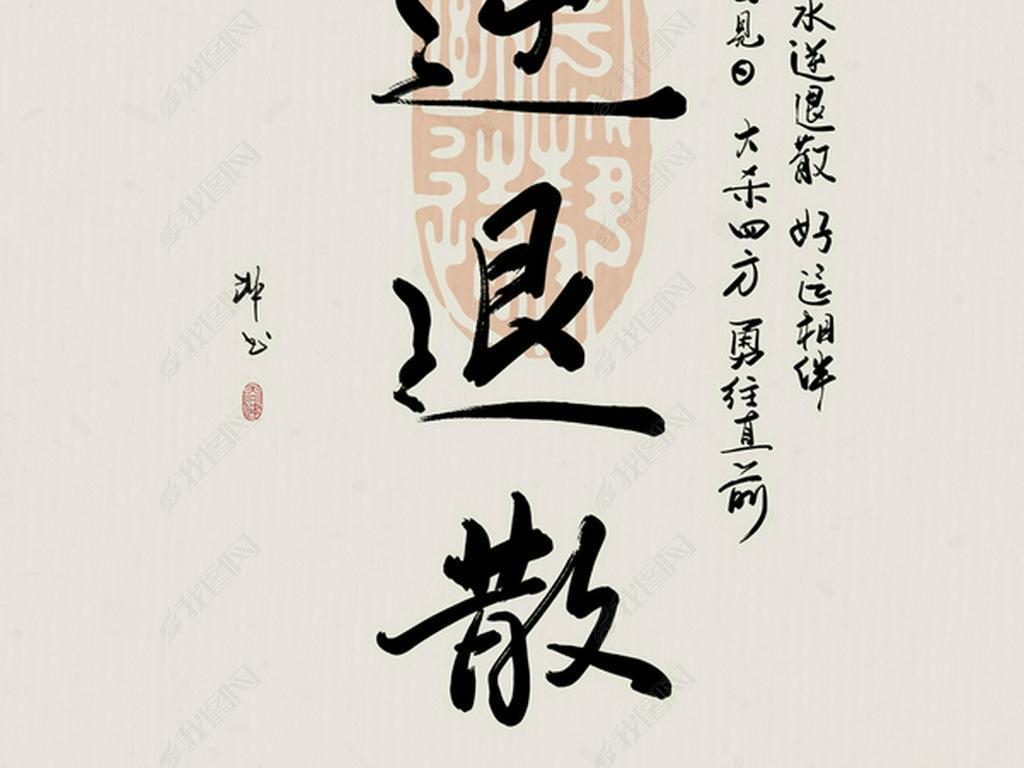 水逆退散 好运相伴
見日 大杀四方 勇往直前
逆退散
书
找图网